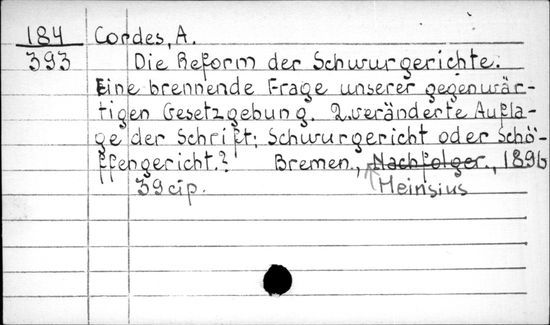 184 Cordes, A.
393 Die Reform der Schwurgerichte.
Eine brennende Frage unserer gegenwär-
tigen Gesetzgebung. 2.veränderte Aufla-
ge der Schrift: Schwurgericht oder Schö-
ffengericht.? Bremen., Nachfolger., 1896
39cip. Heinsius